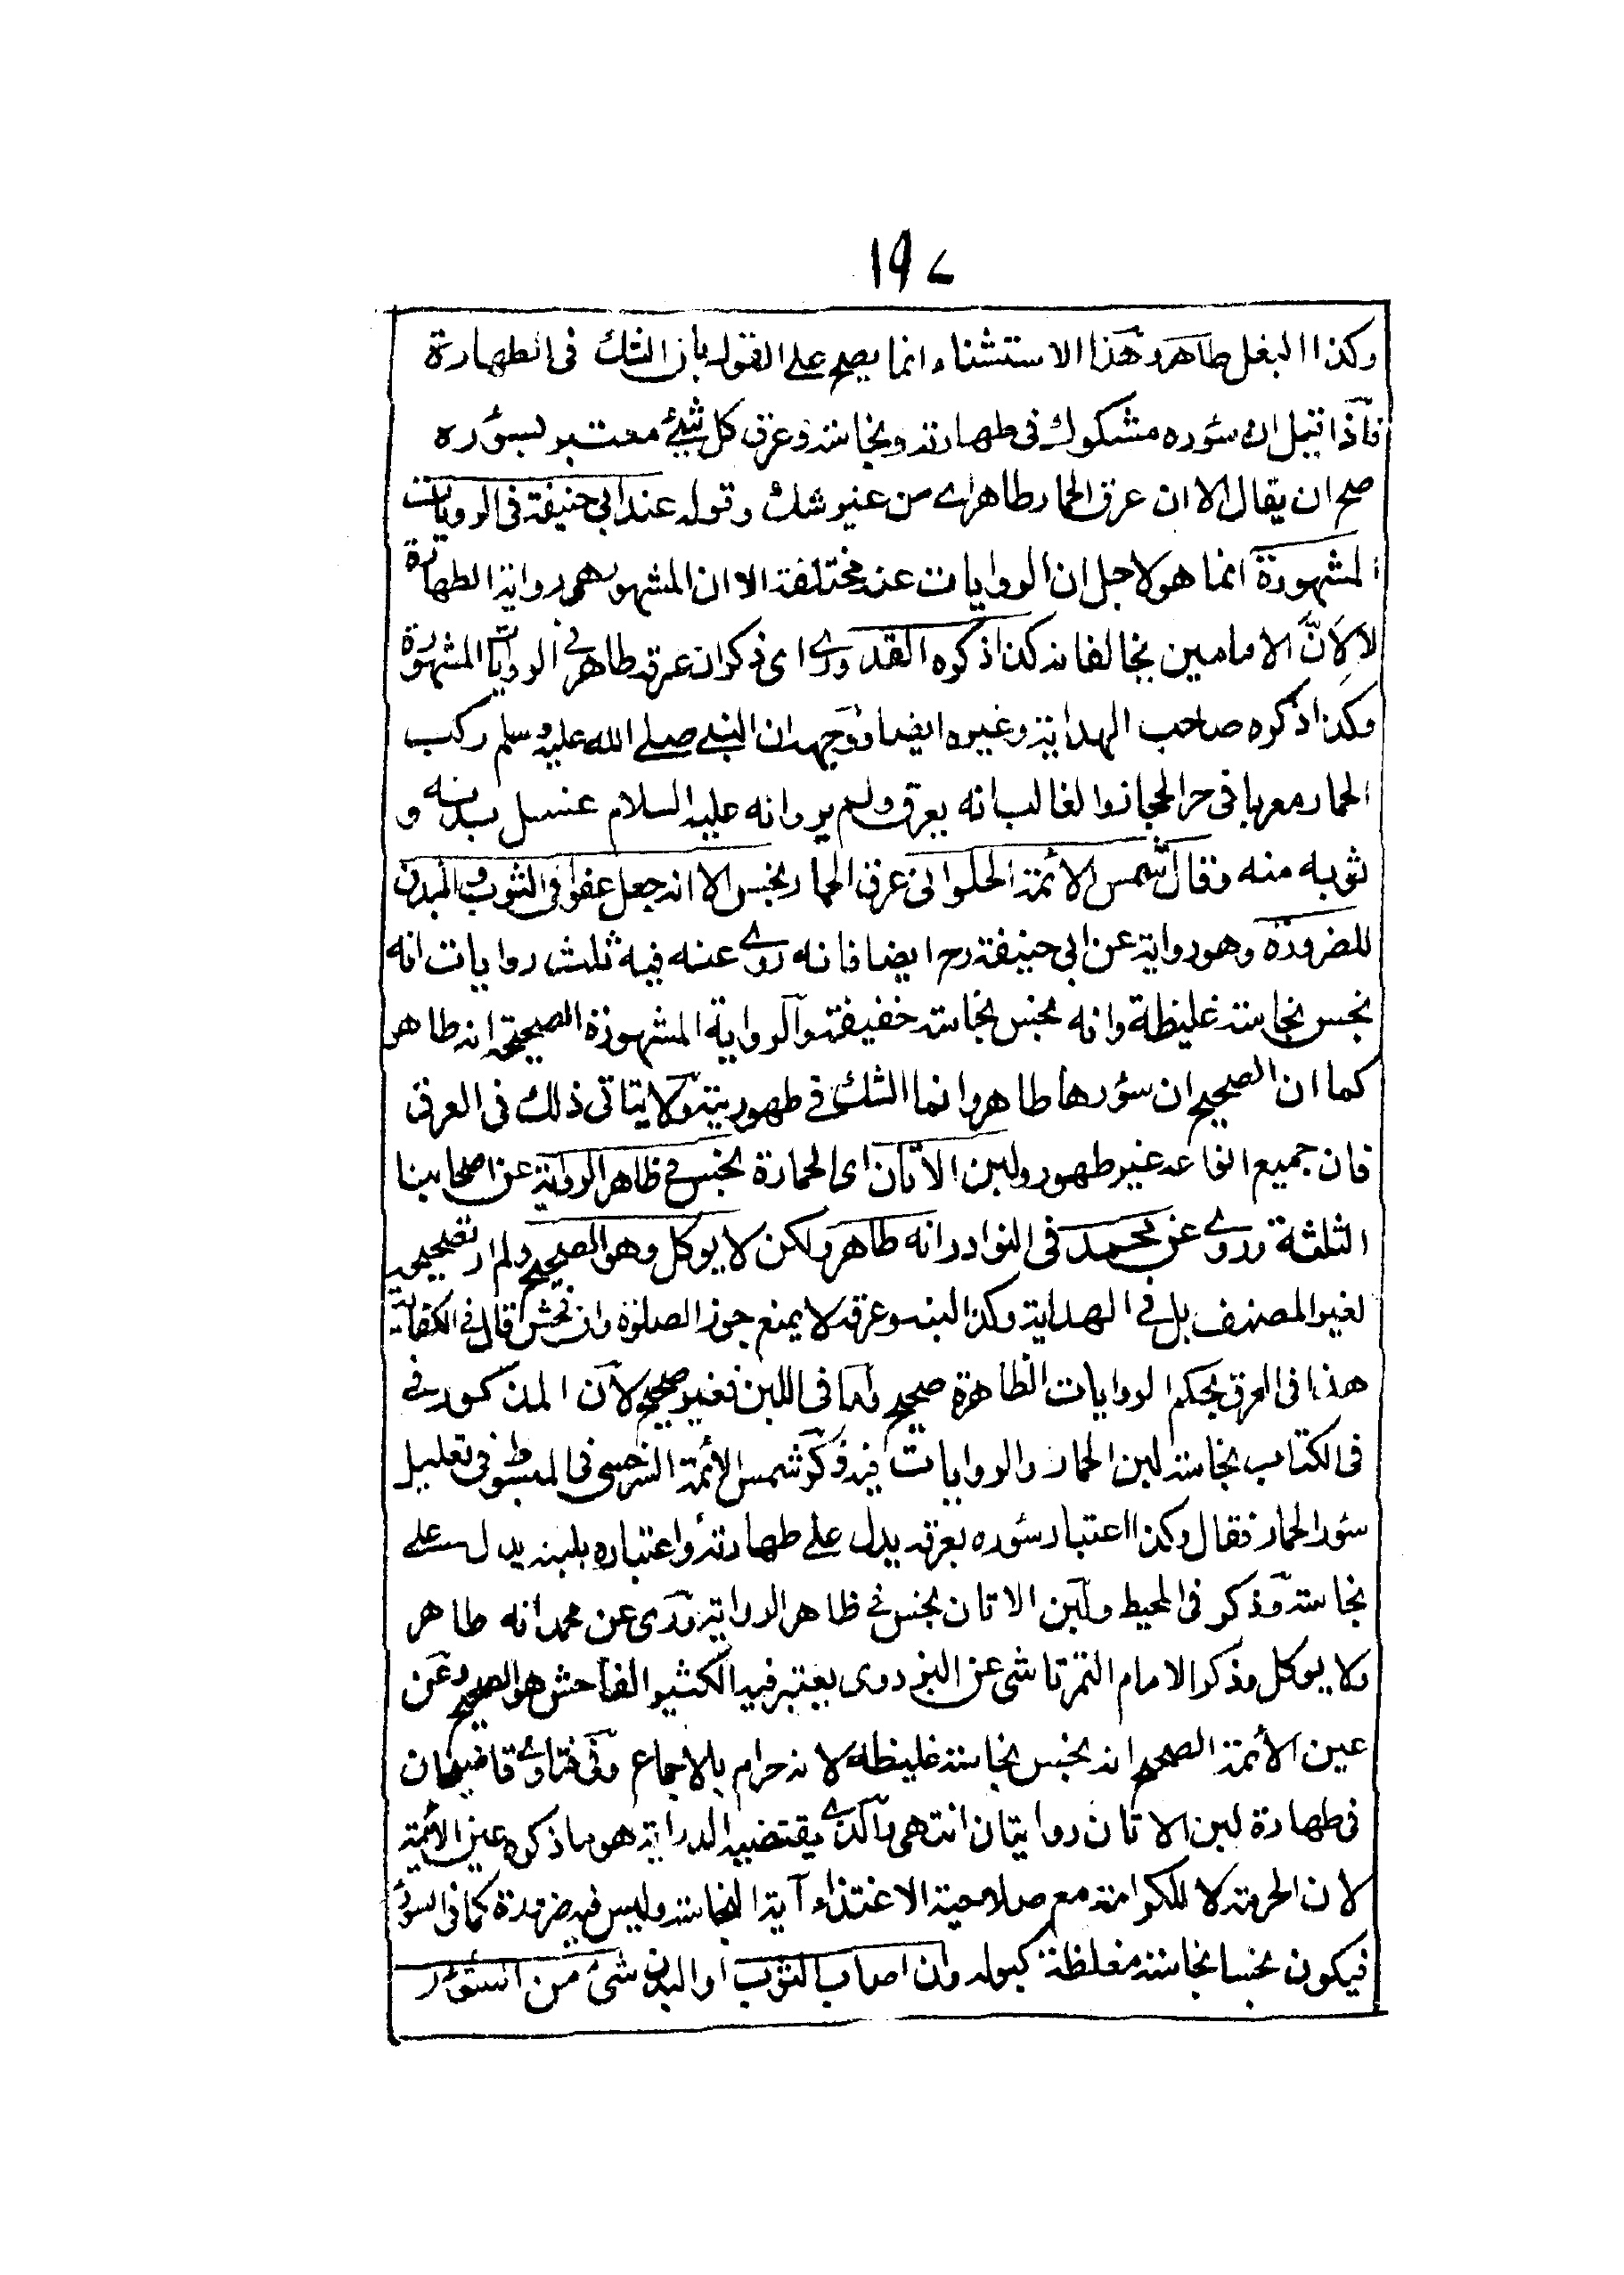 ١٩٧
وكذا البغل طاهر وهذا الاستثناء انما يصح على القول بان الشك فى الطهارة
فاذا قيل ان سؤره مشكوك فى طهارته ونجاسته وعرق كل شئ معتبر بسؤره
صح ان يقال الا ان عرق الحمار طاهر اے من غير شك وقوله عند ابى حنيفة فى الروايات
المشهورة انما هو لاجل ان الروايات عنه مختلفة الا ان المشهور هى رواية الطهارة
لا لِاَنَّ الامامين يخالفانه كذا ذكره القدورے اى ذكر ان عرقه طاهر فى الروايات المشهورة
وكذا ذكره صاحب الهداية وغيره ايضا ووجهه ان النبى صلے الله عليه وسلم ركب
الحمار معريا فى حر الحجاز والغالب انه يعرق ولم يرو انه عليه السلام غسل بدنه و
ثوبه منه وقال شمس الأئمة الحلوانى عرق الحمار نجس الا انه جعل عفوا فى الثوب والبدن
للضرورة وهو رواية عن ابى حنيفة رح ايضا فانه روے عنه فيه ثلث روايات انه
نجس نجاسة غليظة وانه نجس نجاسة خفيفة والرواية المشهورة الصحيحة انه طاهر
كما ان الصحيح ان سؤرها طاهر وانما الشك فى طهوريته ولا يتاتى ذلك فى العرق
فان جميع انواعه غير طهور ولبن الاتان اى الحمارة نجس فى ظاهر الرواية عن اصحابنا
الثلثة وروے عن محمد فى النوادر انه طاهر ولكن لا يوكل وهو الصحيح ولم ار تصحيحه
لغير المصنف بل فى الهداية وكذا لبنه وعرقه لا يمنع جواز الصلوة وان فحش قال فى الكفاية
هذا فى العرق بحكم الروايات الظاهرة صحيح واما فى اللبن فغير صحيح لان المذكور فى
فى الكتاب نجاسة لبن الحمار والروايات فيه وذكر شمس الأئمة السرخسى فى المبسوط فى تعليل
سؤر الحمار فقال وكذا اعتبار سؤره بعرقه يدل علے طهارته واعتباره بلبنه يدل علے
نجاسته وذكر فى المحيط ولبن الاتان نجس فى ظاهر الرواية وروى عن محمد انه طاهر
ولا يوكل وذكر الامام التمرتاشى عن البزدوى يعتبر فيه الكثير الفاحش هو الصحيح وعن
عين الأئمة الصحيح انه نجس نجاسة غليظة لانه حرام بالاجماع وفى فتاوے قاضيخان
فى طهارة لبن الاتان روايتان انتهى والذے يقتضيه الدراية هو ما ذكره عين الأئمة
لان الحرمة لا للكرامة مع صلاحية الاغتذاء آية النجاسة وليس فيه ضرورة كما فى السؤر
فيكون نجسا نجاسة مغلظة كبوله وان اصاب الثوب او البدن شئ من السؤر